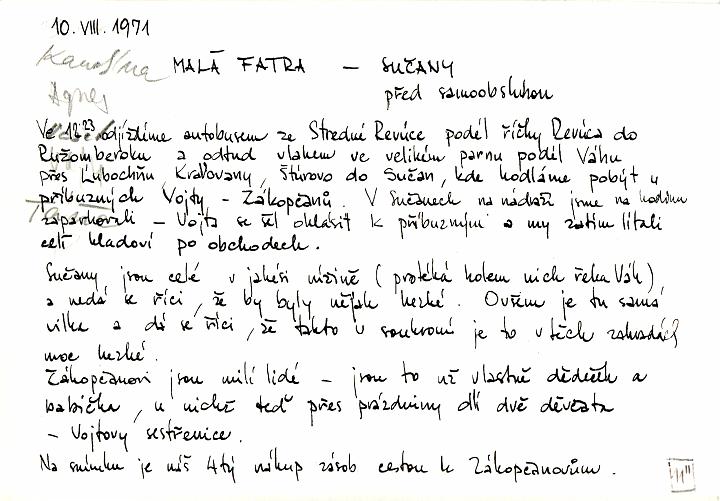 10. VIII. 1971
Karolína
MALÁ FATRA – SUČANY
Agnes
před samoobsluhou
Ve 12²³ odjíždíme autobusem ze Stredné Revúce podél říčky Revúca do
Ružomberoku a odtud vlakem ve velikém parnu podél Váhu
přes Ľubochňu, Kraľovany, Štúrovo do Sučan, kde hodláme pobýt u
příbuzných Vojty – Zákopčanů. V Sučanech na nádraží jsme na hodinu
zaparkovali – Vojta se šel ohlásit k příbuzným a my zatím lítali
celí hladoví po obchodech.
Sučany jsou celé v jakési nížině (protéká kolem nich řeka Váh),
a nedá se říci, že by byly nějak hezké. Ovšem je tu samá
vilka a dá se říci, že takto v soukromí je to v těch zahradách
moc hezké.
Zákopčanovi jsou milí lidé – jsou to už vlastně dědeček a
babička, u nichž teď přes prázdniny dlí dvě děvčata
– Vojtovy sestřenice.
Na snímku je náš 4tý nákup zásob cestou k Zákopčanovům.